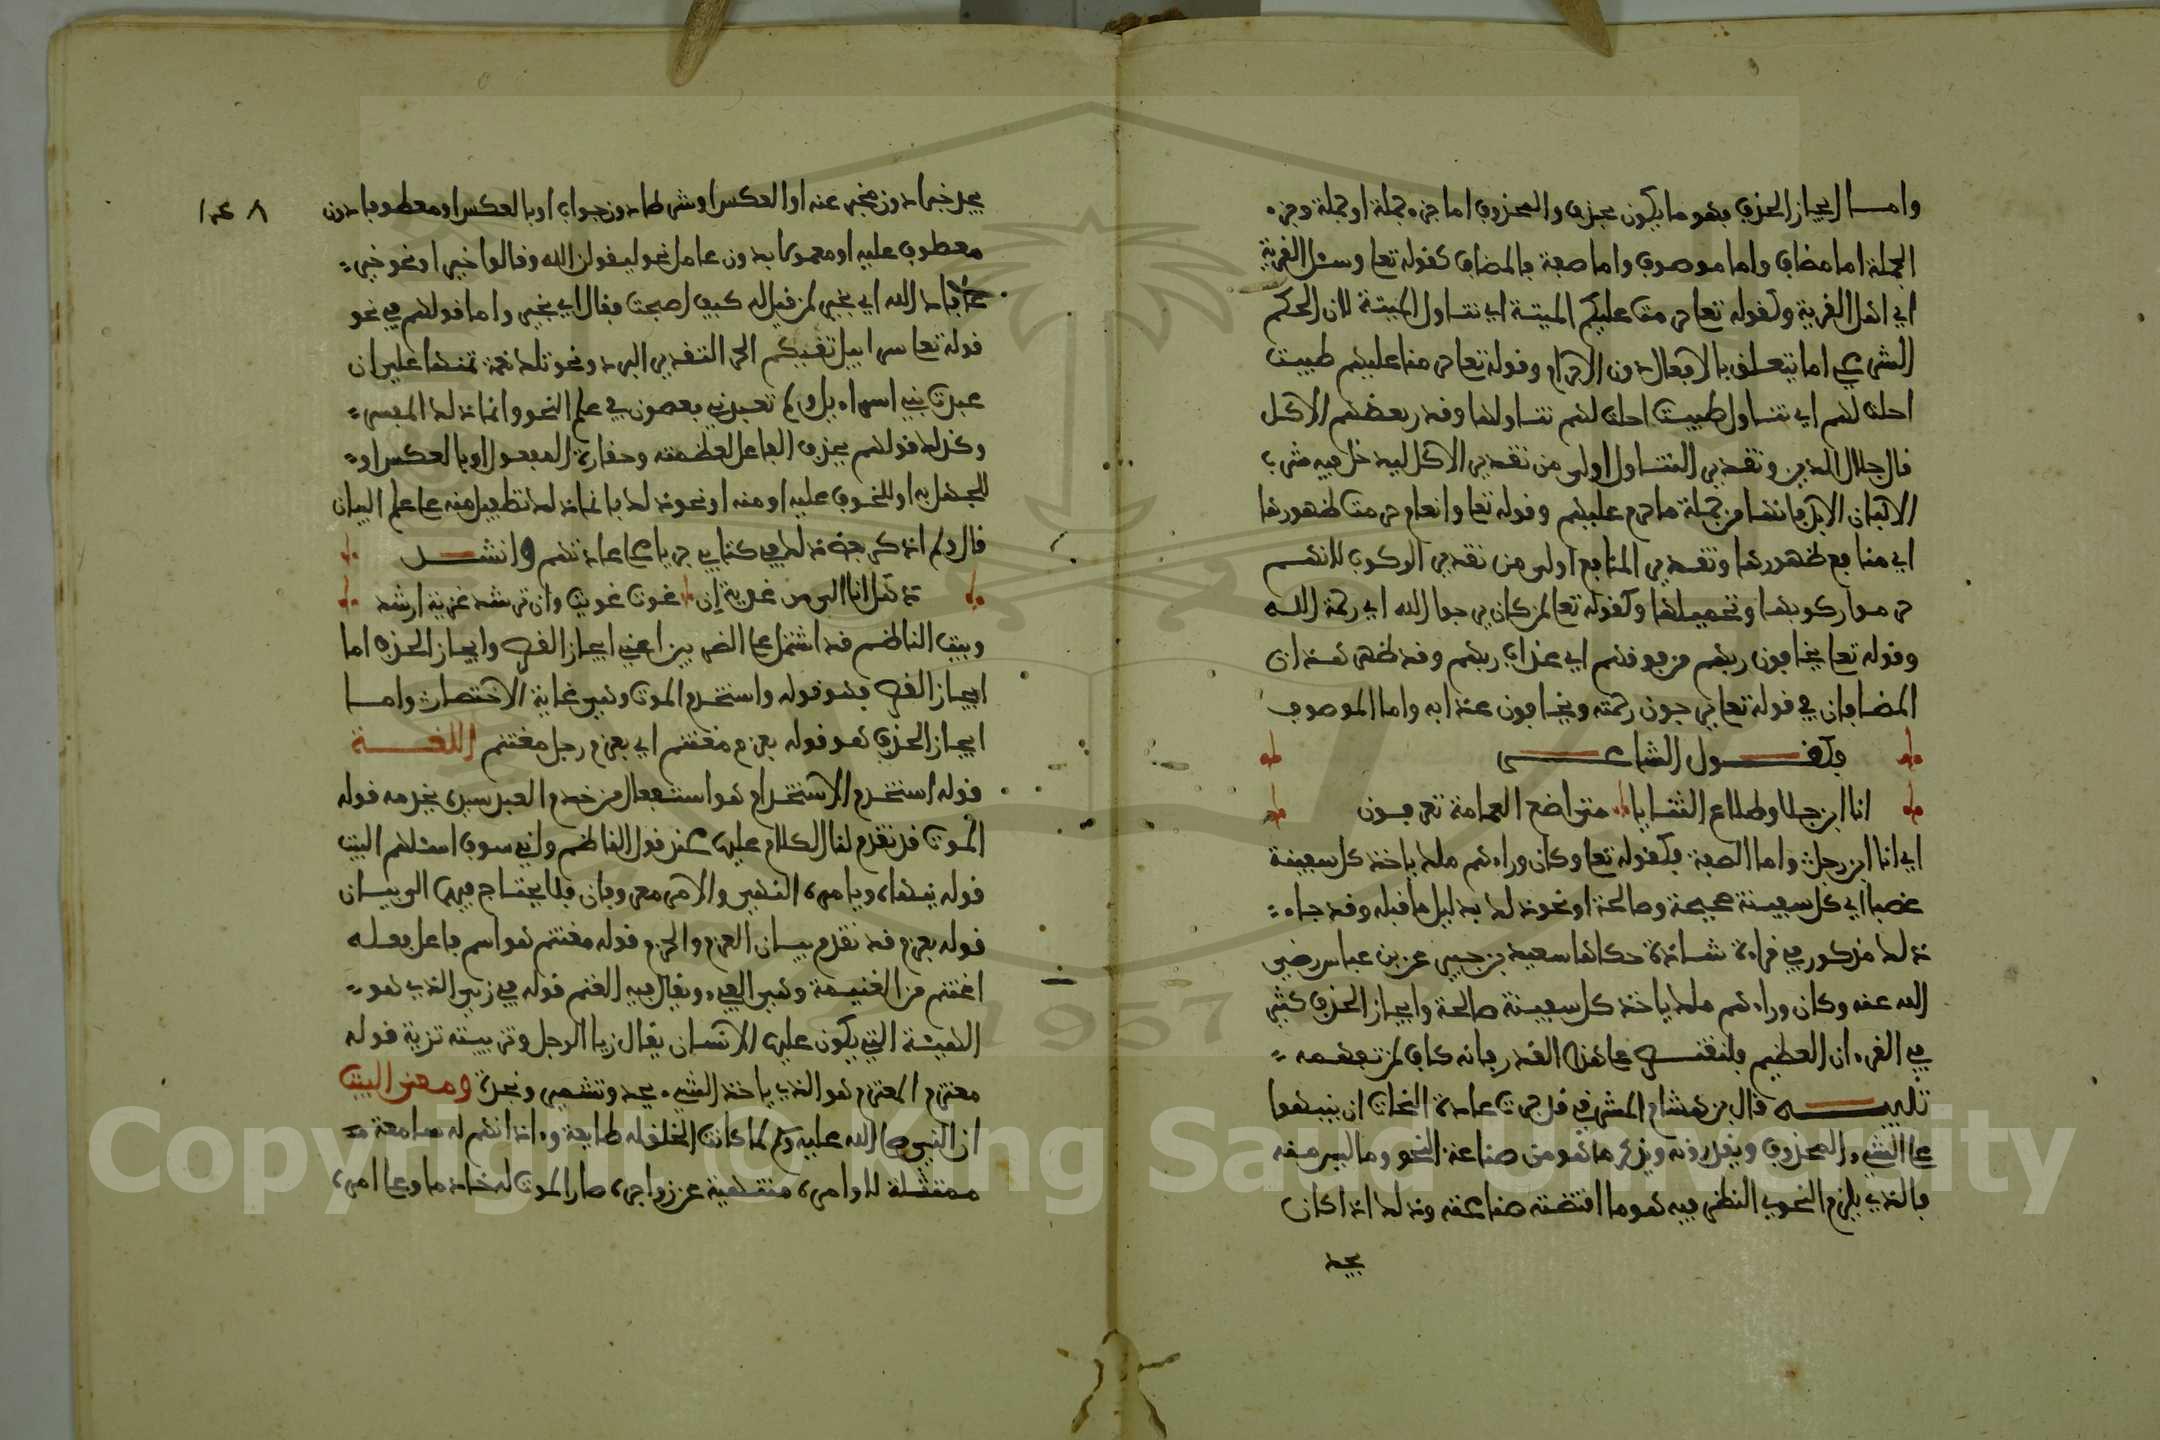 وامــا ايجاز الحذف فهو ما يكون بحذف والمحذوف اما جزء جملة او جملة وجزء
الجملة اما مضاف واما موصوف واما صفة فالمضاف كقوله تعا وسئل القرية
اي اهل القرية وكقوله تعا حرمت عليكم الميتة اي تناول الميتة لان الحكم
الشرعي انما يتعلق بالافعال دون الاجرام وقوله تعا حرمنا عليهم طيبت
احلت لهم اي تناول طيبت احلت لهم تناولها وقدر بعظهم الاكل
قال جلال الدين وتقدير التناول اولى من تقدير الاكل ليدخل فيه شرب
الالبان الابل فانها من جملة ما حرم عليهم وقوله تعا وانعام حرمت ظهورها
اي منافع ظهورها وتقدير المنافع اولى من تقدير الركوب لانهم
حرموا ركوبها وتحميلها وكقوله تعا لمن كان يرجوا الله اي رحمة الله
وقوله تعا يخافون ربهم من فوقهم اي عذاب ربهم وقد ظهر هذان
المضافان في قوله تعا يرجون رحمته ويخافون عذابه واما الموصوف
فكقــول الشاعــر
انا ابن جلا وطلاع الثنايا متى اضع العمامة تعرفون
اي انا ابن رجل واما الصفة فكقوله تعا وكان وراءهم ملك ياخذ كل سفينة
غصبا اي كل سفينة صحيحة وصالحة او نحو ذلك بدليل ما قبله وقد جاء
ذلك مذكور في قراءة شاذة حكاها سعيد بن جبير عن بن عباس رضي
الله عنه وكان وراءهم ملك ياخذ كل سفينة صالحة وايجاز الحذف كثير
في القرءان العظيم فلنقتصر على هذا القدر فانه كاف لمن تفهمه
تنبيــه قال بن هشام المشرفي قد جرت عادة النحات ان ينبهوا
على الشيء المحذوف ويقدرونه ويذكر ما هو من صناعة النحو وما ليس منه
فالذي يلزم النحوي النظر فيه هو ما اقتضته صناعته وذلك اذا كان
يجد
٨ ١٤
يجد خبرا دون مخبر عنه او العكس او شرطا دون جواب او بالعكس او معطوفا دون
معطوف عليه او معمولا بدون عامل نحو ليقولن الله وقالوا خيرا ونحو خير
عافاك الله اي بخير لمن قيل له كيف اصبحت فقال اي بخير واما قولهم في نحو
قوله تعا سرابيل تقيكم الحر التقدير البرد ونحو تلك نعمة تمنها علي ان
عبدت بني اسراءيل ولم تعبدني ففضول في علم النحو وانما ذلك للمفسر
وكذلك قولهم يحذف الفاعل لعظمته وحقارة المفعول او بالعكس او
للجهل به او للخوف عليه او منه او نحو ذلك فانما ذلك تطفيل منه على علم البيان
قال ولم اذكر بعض ذلك في كتابي جريا على عادتهم وانشــد
وهل انا الا من غزية إن غوت غويت وان ترشد غزية ارشد
وبيت الناظم قد اشتمل على الضربين اعني ايجاز القصر وايجاز الحذف اما
ايجاز القصر فهو قوله واستخدم الموت وهي غاية الاختصار وامــا
ايجاز الحذف هو قوله بعزم مغتنم اي بعزم رجل مغتنم اللغــة
قوله استخدم الاستخدام هو استفعال من خدم العبد سيده يخدمه قوله
الموت قد تقدم لنا الكلام عليه عند قول الناظم واني سوف اسئلهم البيت
قوله ينهاه ويامره النهي والامر معروفان فلا يحتاج فيهما الى بيان
قوله بعزم قد تقدم بيان العزم والحزم قوله مغتنم هو اسم فاعل فعله
اغتنم من الغنيمة وهي الفيء ويقال فيه الغنم قوله في زي الزي هو
الهيئة التي يكون عليها الانسان يقال زيا الرجل وتزييته تزية قوله
مغترم المغترم هو الذي ياخذ الشيء بجد وتشمير ونجدة ومعنى البيت
ان النبي صلى الله عليه ولم لما كانت الخلق له طايعة واذانهم له سامعة
ممتثلة لاوامره منتهية عن زواجره صار الموت له خادما وعلى امره